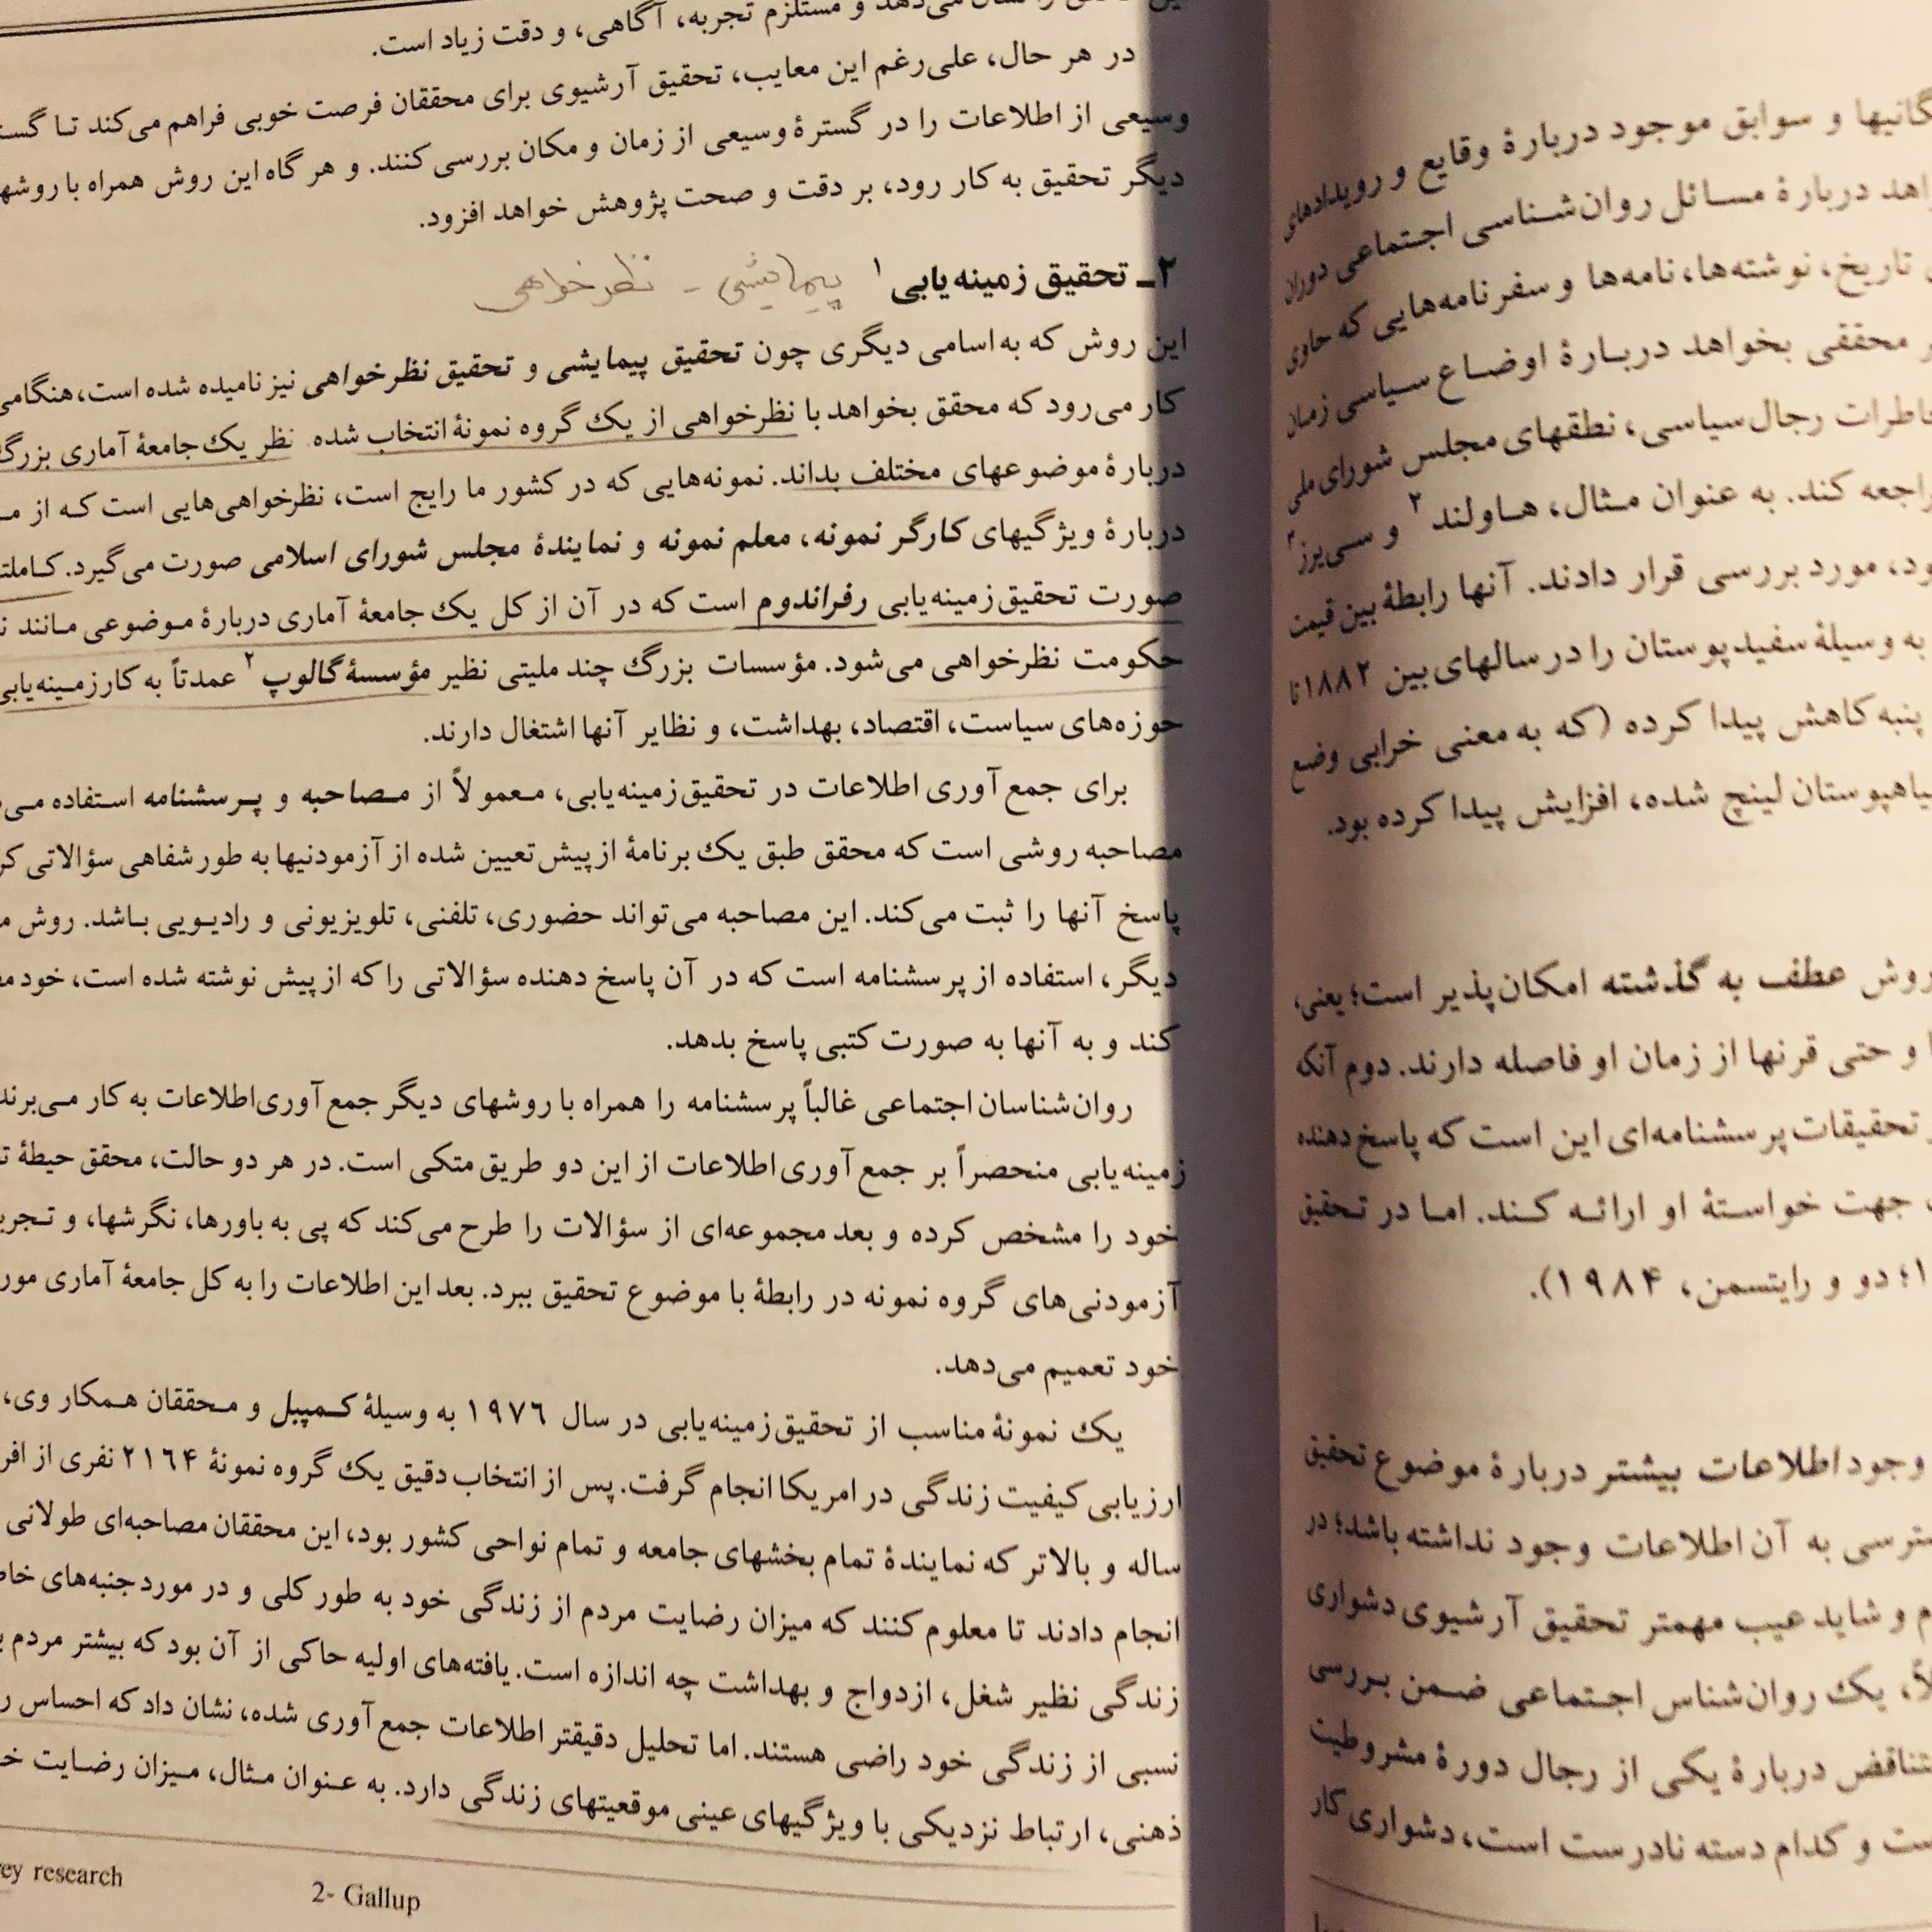 گانیها و سوابق موجود دربارهٔ وقایع و رویدادهای
دربارهٔ مسائل روان‌شناسی اجتماعی دوران
تاریخ، نوشته‌ها، نامه‌ها و سفرنامه‌هایی که حاوی
محققی بخواهد دربارهٔ اوضاع سیاسی زمان
رجال سیاسی، نطقهای مجلس شورای ملی
کند. به عنوان مثال، هاولند ۲ و سی‌یرز ۳
مورد بررسی قرار دادند. آنها رابطهٔ بین قیمت
به وسیلهٔ سفیدپوستان را در سالهای بین ۱۸۸۲ تا
پنبه کاهش پیدا کرده (که به معنی خرابی وضع
لینچ شده، افزایش پیدا کرده بود.
روش عطف به گذشته امکان‌پذیر است؛ یعنی،
و حتی قرنها از زمان او فاصله دارند. دوم آنکه
تحقیقات پرسشنامه‌ای این است که پاسخ دهنده
جهت خواستهٔ او ارائه کند. اما در تحقیق
دو و رایتسمن، ۱۹۸۴).
وجود اطلاعات بیشتر دربارهٔ موضوع تحقیق
به آن اطلاعات وجود نداشته باشد؛ در
و شاید عیب مهمتر تحقیق آرشیوی دشواری
یک روان‌شناس اجتماعی ضمن بررسی
دربارهٔ یکی از رجال دورهٔ مشروطیت
و کدام دسته نادرست است، دشواری کار
و مستلزم تجربه، آگاهی، و دقت زیاد است.
در هر حال، علی‌رغم این معایب، تحقیق آرشیوی برای محققان فرصت خوبی فراهم می‌کند تا
وسیعی از اطلاعات را در گسترهٔ وسیعی از زمان و مکان بررسی کنند. و هر گاه این روش همراه با روشها
دیگر تحقیق به کار رود، بر دقت و صحت پژوهش خواهد افزود.
۲ـ تحقیق زمینه‌یابی ۱ پیمایشی - نظرخواهی
این روش که به اسامی دیگری چون تحقیق پیمایشی و تحقیق نظرخواهی نیز نامیده شده است، هنگامی
کار می‌رود که محقق بخواهد با نظرخواهی از یک گروه نمونهٔ انتخاب شده نظر یک جامعهٔ آماری بزرگ
دربارهٔ موضوعهای مختلف بداند. نمونه‌هایی که در کشور ما رایج است، نظرخواهی‌هایی است که از
دربارهٔ ویژگیهای کارگر نمونه، معلم نمونه و نمایندهٔ مجلس شورای اسلامی صورت می‌گیرد.
صورت تحقیق زمینه‌یابی رفراندوم است که در آن از کل یک جامعهٔ آماری دربارهٔ موضوعی مانند
حکومت نظرخواهی می‌شود. مؤسسات بزرگ چند ملیتی نظیر مؤسسهٔ گالوپ ۲ عمدتاً به کار زمینه‌یابی
حوزه‌های سیاست، اقتصاد، بهداشت، و نظایر آنها اشتغال دارند.
برای جمع آوری اطلاعات در تحقیق زمینه‌یابی، معمولاً از مصاحبه و پرسشنامه استفاده
مصاحبه روشی است که محقق طبق یک برنامهٔ از پیش تعیین شده از آزمودنیها به طور شفاهی سؤالاتی
پاسخ آنها را ثبت می‌کند. این مصاحبه می‌تواند حضوری، تلفنی، تلویزیونی و رادیویی باشد. روش
دیگر، استفاده از پرسشنامه است که در آن پاسخ دهنده سؤالاتی را که از پیش نوشته شده است، خود
کند و به آنها به صورت کتبی پاسخ بدهد.
روان‌شناسان اجتماعی غالباً پرسشنامه را همراه با روشهای دیگر جمع آوری اطلاعات به کار می‌برند
زمینه‌یابی منحصراً بر جمع آوری اطلاعات از این دو طریق متکی است. در هر دو حالت، محقق حیطهٔ
خود را مشخص کرده و بعد مجموعه‌ای از سؤالات را طرح می‌کند که پی به باورها، نگرشها، و
آزمودنی‌های گروه نمونه در رابطهٔ با موضوع تحقیق ببرد. بعد این اطلاعات را به کل جامعهٔ آماری
خود تعمیم می‌دهد.
یک نمونهٔ مناسب از تحقیق زمینه‌یابی در سال ۱۹۷۶ به وسیلهٔ کمپبل و محققان همکار وی،
ارزیابی کیفیت زندگی در امریکا انجام گرفت. پس از انتخاب دقیق یک گروه نمونهٔ ۲۱۶۴ نفری از
ساله و بالاتر که نمایندهٔ تمام بخشهای جامعه و تمام نواحی کشور بود، این محققان مصاحبه‌ای طولانی
انجام دادند تا معلوم کنند که میزان رضایت مردم از زندگی خود به طور کلی و در مورد جنبه‌های
زندگی نظیر شغل، ازدواج و بهداشت چه اندازه است. یافته‌های اولیه حاکی از آن بود که بیشتر مردم
نسبی از زندگی خود راضی هستند. اما تحلیل دقیقتر اطلاعات جمع آوری شده، نشان داد که احساس
ذهنی، ارتباط نزدیکی با ویژگیهای عینی موقعیتهای زندگی دارد. به عنوان مثال، میزان رضایت
ey research
2- Gallup